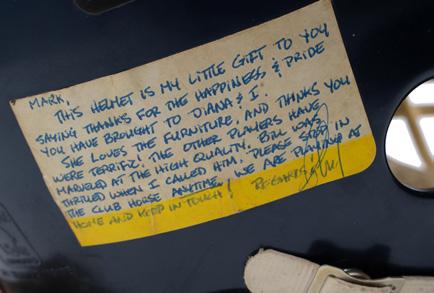 MARK,
THIS HELMET IS MY LITTLE GIFT TO YOU
SAYING THANKS FOR THE HAPPINESS & PRIDE
YOU HAVE BROUGHT TO DIANA & I.
SHE LOVES THE FURNITURE, AND THINKS YOU
WERE TERRIFIC! THE OTHER PLAYERS HAVE
MARVELED AT THE HIGH QUALITY. BILL WAS
THRILLED WHEN I CALLED HIM. PLEASE STOP IN
THE CLUB HORSE ANYTIME, WE ARE PLAYING AT
HOME AND KEEP IN TOUCH! REGARDS,